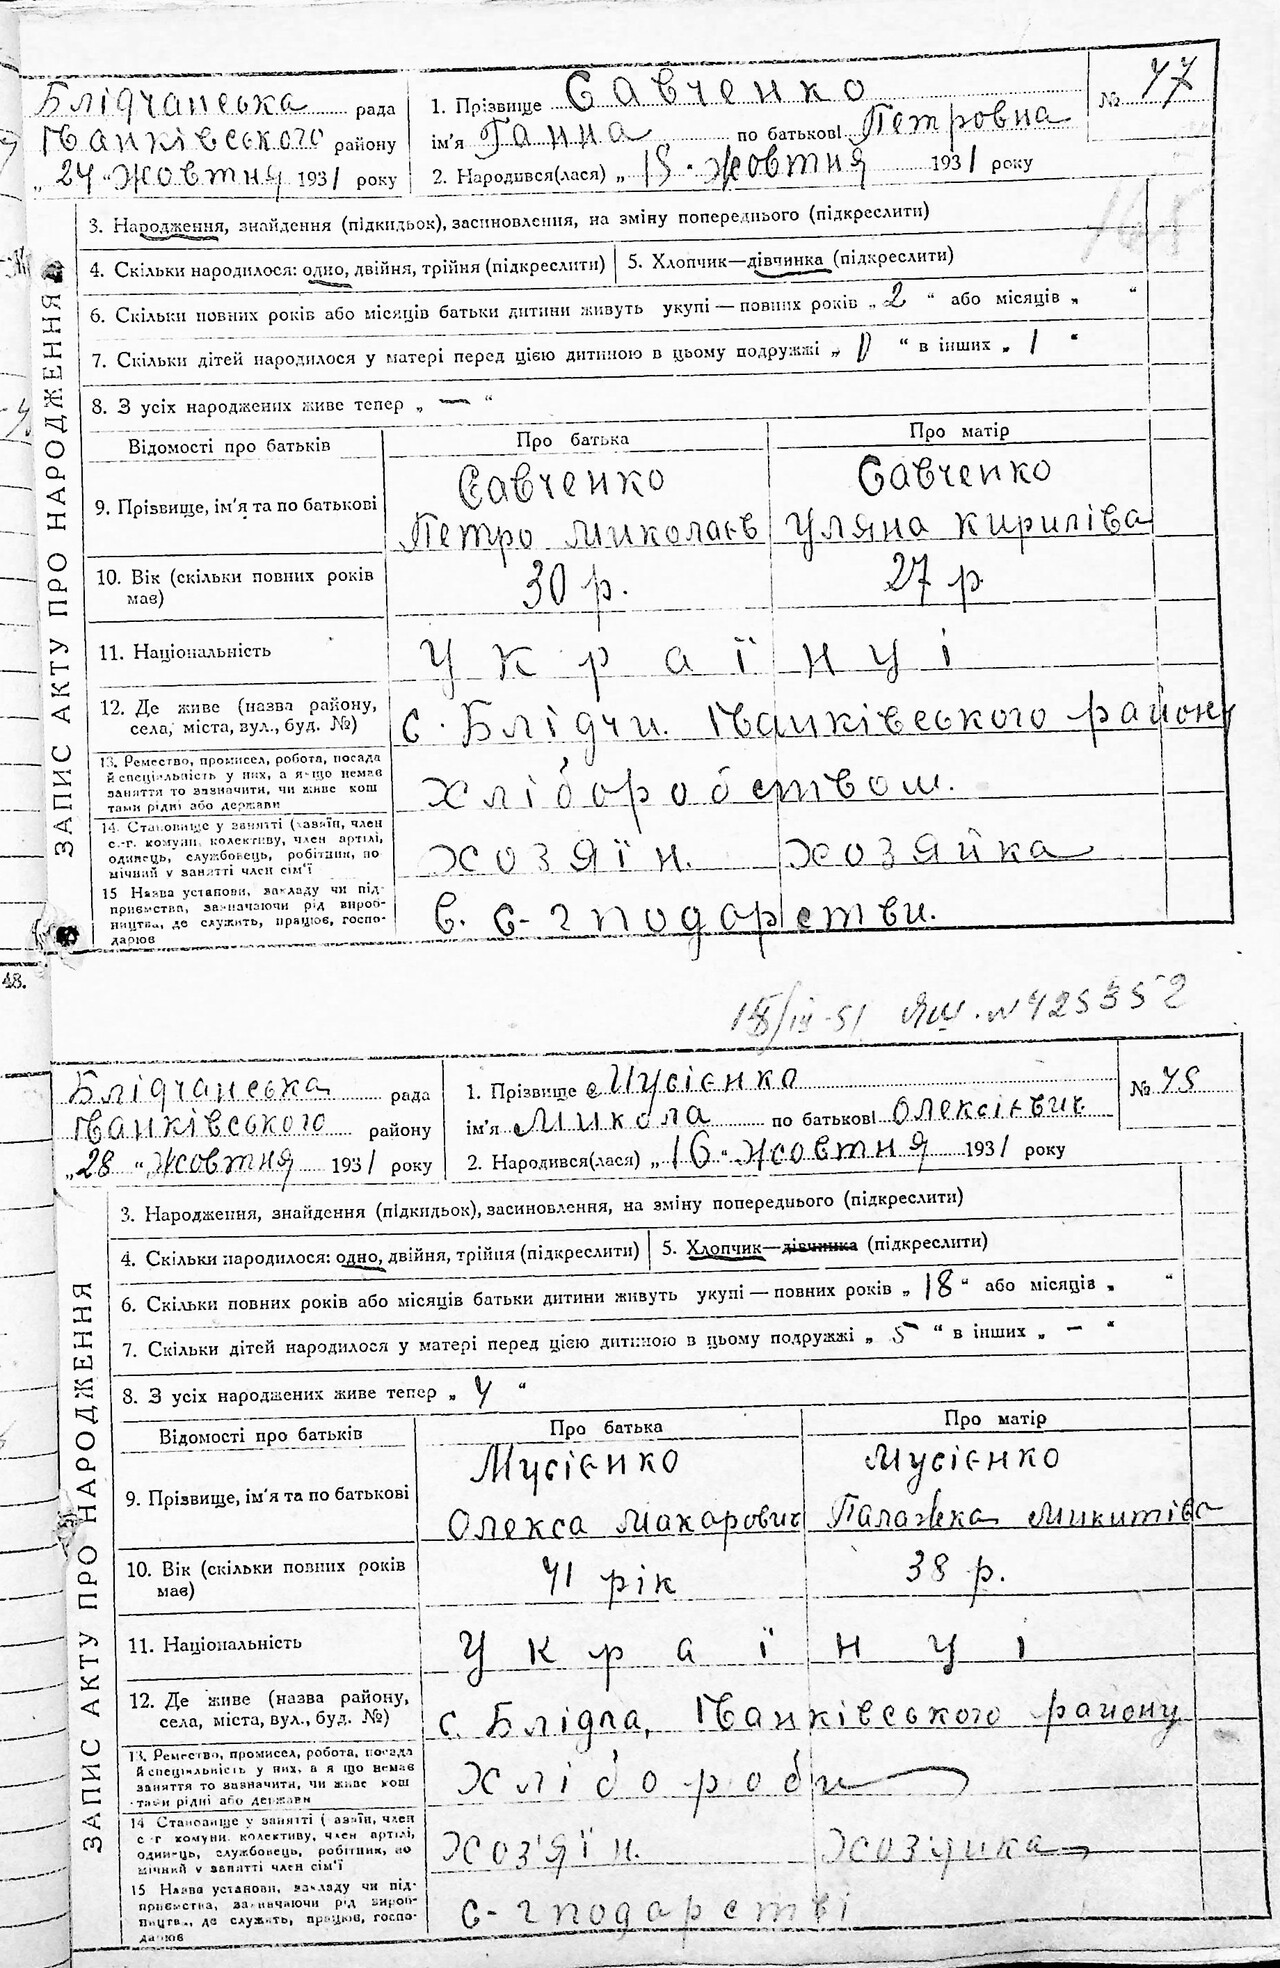 Блідчанська рада
Іванківського району
„24“ Жовтня 1931 року
1. Прізвище Савченко
ім'я Ганна по батькові Петровна
2. Народився(лася) „15“ Жовтня 1931 року
№ 47
ЗАПИС АКТУ ПРО НАРОДЖЕННЯ
3. Народження, знайдення (підкидьок), засиновлення, на зміну попереднього (підкреслити)
4. Скільки народилося: одно, двійня, трійня (підкреслити)
5. Хлопчик—дівчинка (підкреслити)
6. Скільки повних років або місяців батьки дитини живуть укупі — повних років „2“ або місяців „ “
7. Скільки дітей народилося у матері перед цією дитиною в цьому подружжі „0“ в інших „1“
8. З усіх народжених живе тепер „—“
Відомості про батьків
Про батька
Про матір
9. Прізвище, ім'я та по батькові
Савченко
Петро Миколаєв
Савченко
Уляна Кирилівa
10. Вік (скільки повних років має)
30 р.
27 р
11. Національність
Українці
12. Де живе (назва району,
села, міста, вул., буд. №)
с. Блідчи. Іванківського району
13. Ремество, промисел, робота, посада
й спеціяльність у них, а якщо немає
заняття то зазначити, чи живе кош
тами рідні або держави
Хліборобством.
14. Становище у занятті (хазяїн, член
с.-г. комуни, колективу, член артілі,
одинець, службовець, робітник, по
мічний у занятті член сім'ї
хозяїн.
хозяйка
15 Назва установи, закладу чи під-
приємства, зазначаючи рід вироб-
ництва, де служить, працює, госпо-
дарює
в. с-господарстви.
48.
№ 425352
Блідчанська рада
Іванківського району
„28“ Жовтня 1931 року
1. Прізвище Мусієнко
ім'я Микола по батькові Олексієвич
2. Народився(лася) „16“ Жовтня 1931 року
№ 48
ЗАПИС АКТУ ПРО НАРОДЖЕННЯ
3. Народження, знайдення (підкидьок), засиновлення, на зміну попереднього (підкреслити)
4. Скільки народилося: одно, двійня, трійня (підкреслити)
5. Хлопчик—дівчинка (підкреслити)
6. Скільки повних років або місяців батьки дитини живуть укупі — повних років „18“ або місяців „ “
7. Скільки дітей народилося у матері перед цією дитиною в цьому подружжі „5“ в інших „—“
8. З усіх народжених живе тепер „4“
Відомості про батьків
Про батька
Про матір
9. Прізвище, ім'я та по батькові
Мусієнко
Олекса Макарович
Мусієнко
Палажка Микитівa
10. Вік (скільки повних років має)
41 рік
38 р.
11. Національність
Українці
12. Де живе (назва району,
села, міста, вул., буд. №)
с. Блідча, Іванківського району
13. Ремество, промисел, робота, посада
й спеціяльність у них, а якщо немає
заняття то зазначити, чи живе кош
тами рідні або держави
Хлібороби
14 Становище у занятті (хазяїн, член
с-г комуни, колективу, член артілі,
одинець, службовець, робітник, по
мічний у занятті член сім'ї
хоз'яїн.
хоз'яйка
15 Назва установи, закладу чи під-
приємства, зазначаючи рід вироб-
ництва, де служить, працює, госпо-
дарює
с-господарстві